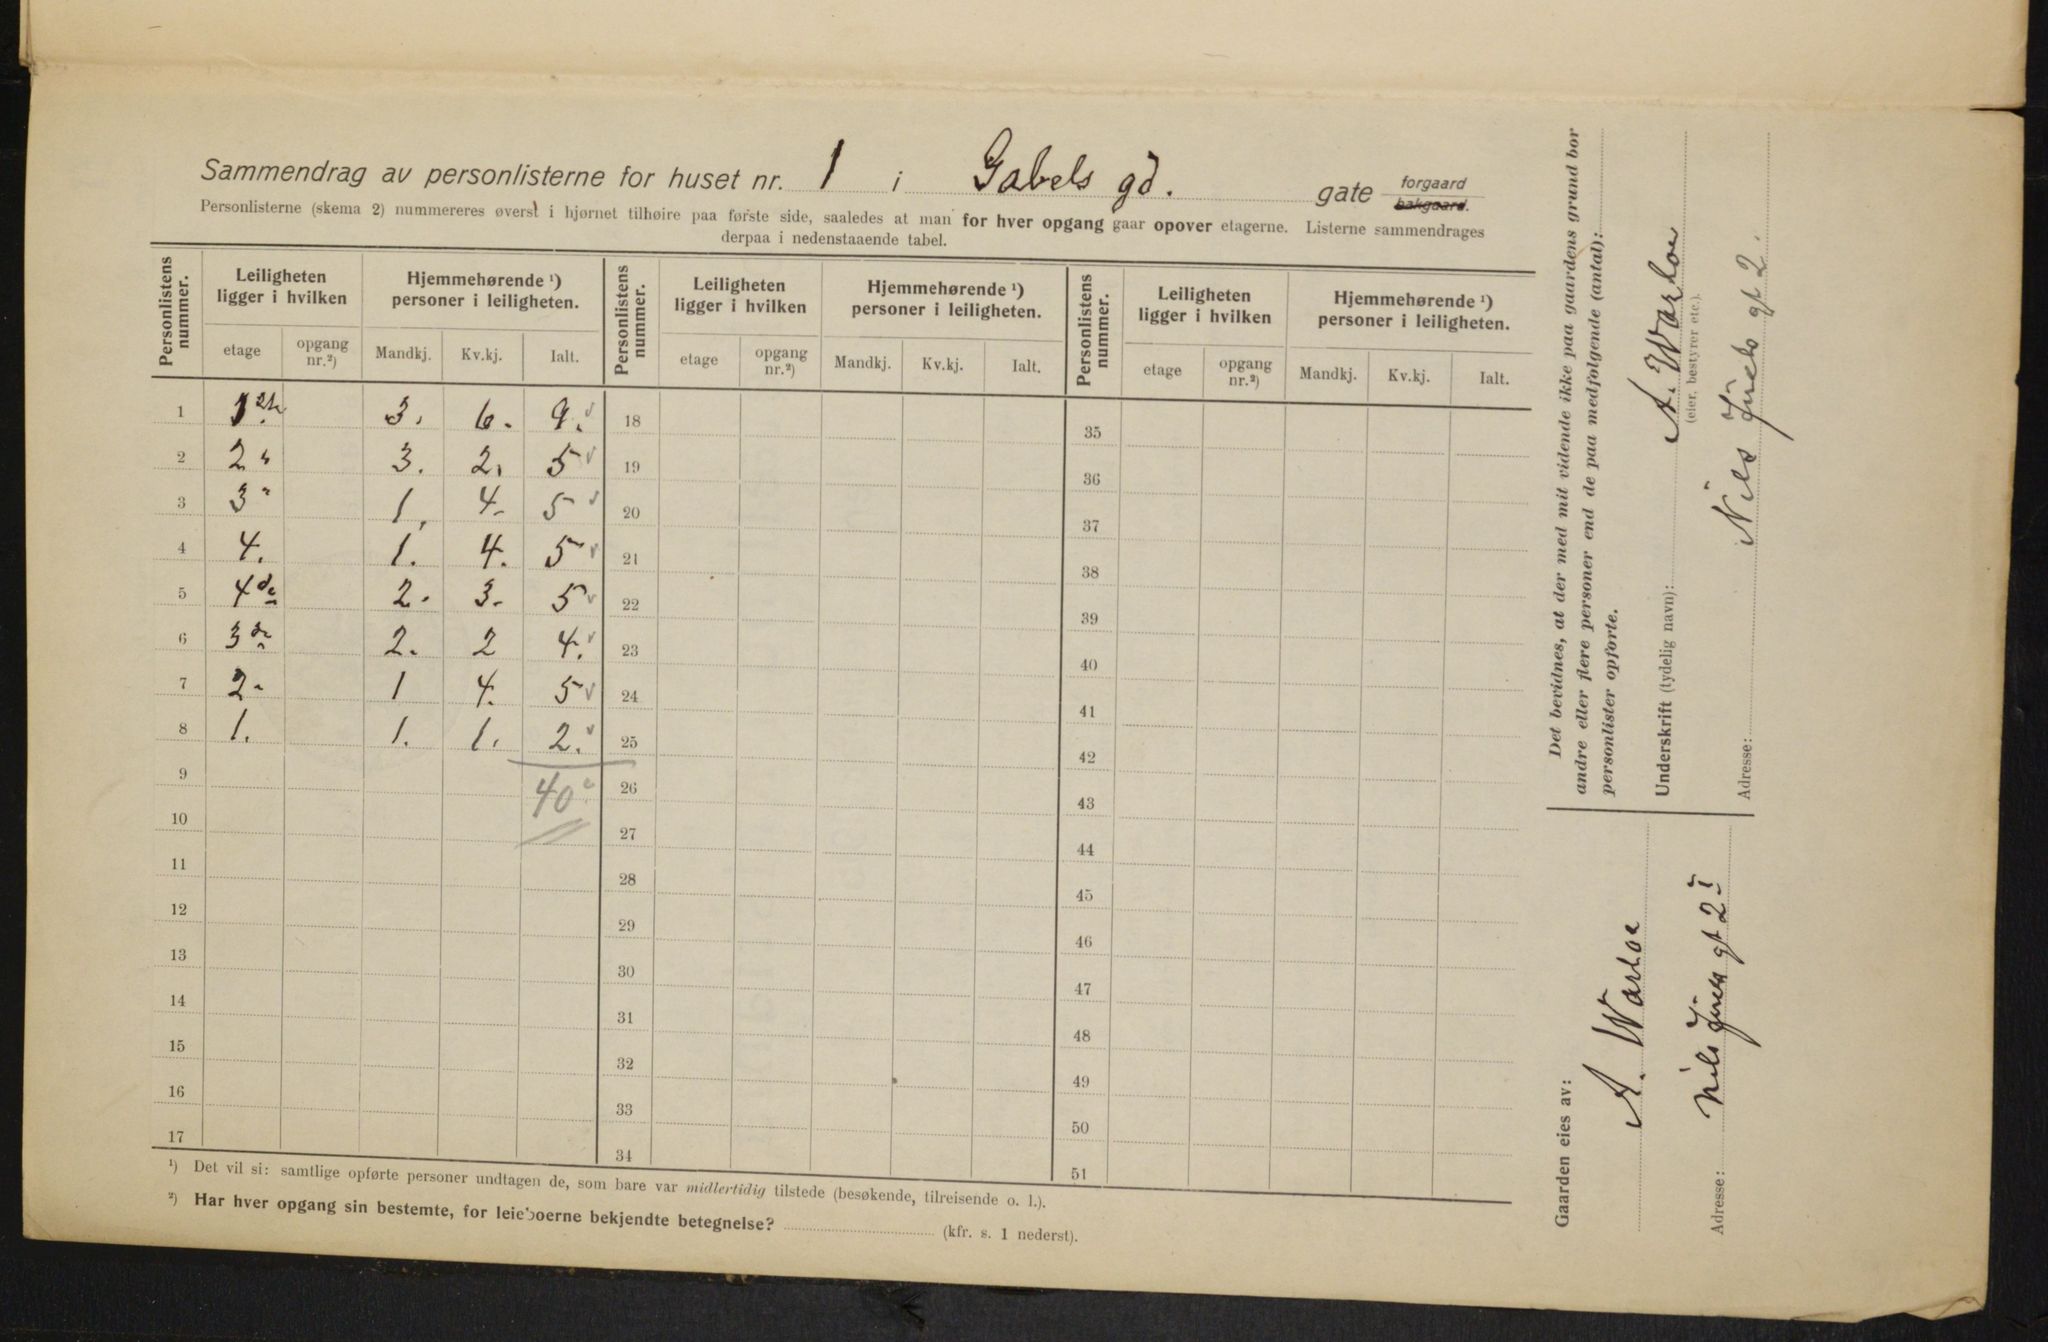 Sammendrag av personlisterne for huset nr. 1 i Gabels gd. gate forgaard bakgaard.
Personlisterne (skema 2) nummereres øverst i hjørnet tilhøire paa første side, saaledes at man for hver opgang gaar opover etagerne. Listerne sammendrages
derpaa i nedenstaaende tabel.
Personlistens nummer. Leiligheten ligger i hvilken Hjemmehørende ¹) personer i leiligheten. Personlistens nummer. Leiligheten ligger i hvilken Hjemmehørende ¹) personer i leiligheten. Personlistens nummer. Leiligheten ligger i hvilken Hjemmehørende ¹) personer i leiligheten.
etage opgang nr.²) Mandkj. Kv.kj. Ialt. etage opgang nr.²) Mandkj. Kv.kj. Ialt. etage opgang nr.²) Mandkj. Kv.kj. Ialt.
1 1 3. 6. 9. 18 35
2 2 3. 2. 5 19 36
3 3 1. 4. 5 20 37
4 4. 1. 4. 5 21 38
5 4 2. 3. 5 22 39
6 3 2. 2 4. 23 40
7 2 1 4. 5 24 41
8 1. 1. 1. 2. 25 42
9 40 26 43
10 27 44
11 28 45
12 29 46
13 30 47
14 31 48
15 32 49
16 33 50
17 34 51
¹) Det vil si: samtlige opførte personer undtagen de, som bare var midlertidig tilstede (besøkende, tilreisende o. l.).
²) Har hver opgang sin bestemte, for leieboerne bekjendte betegnelse? (kfr. s. 1 nederst).
Det bevidnes, at der med mit vidende ikke paa gaardens grund bor
andre eller flere personer end de paa medfølgende (antal):
personlister opførte.
Underskrift (tydelig navn): A. Warloe
(eier, bestyrer etc.).
Adresse: Nils Juels gt 2.
Gaarden eies av:
A. Warloe
Adresse: Nils Juels gt 2 I